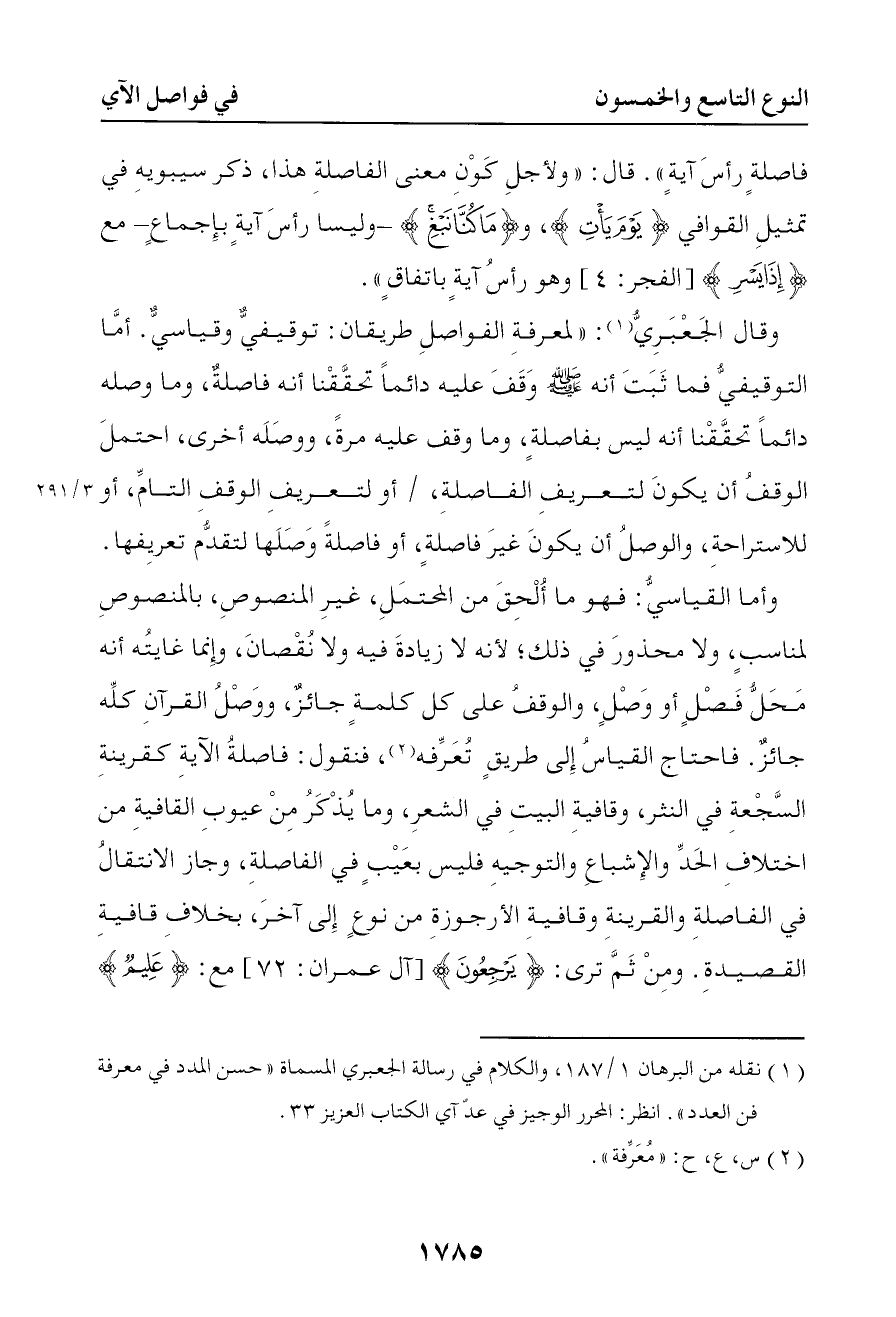 النوع التاسع والخمسون في فواصل الآي
فاصلةٍ رأسَ آية». قال: «ولأجلِ كَوْنِ معنى الفاصلةِ هذا، ذكر سيبويهِ في
تمثيلِ القوافي ﴿ يَوْمَ يَأْتِ ﴾، و﴿ مَا كُنَّا نَبْغِ ﴾ -وليسا رأسَ آيةٍ بإجماعٍ- مع
﴿ إِذَا يَسْرِ ﴾ [الفجر: ٤] وهو رأسُ آيةٍ باتفاقٍ».
وقال الجَعْبَريُّ(١): «لمعرفةِ الفواصلِ طريقان: توقيفيٌّ وقياسيٌّ. أمَّا
التوقيفيُّ فما ثَبَتَ أنه ﷺ وَقَفَ عليه دائماً تحقَّقْنا أنه فاصلةٌ، وما وصله
دائماً تحقَّقْنا أنه ليس بفاصلةٍ، وما وقف عليه مرةً، ووصَلَه أخرى، احتملَ
الوقفُ أن يكونَ لتعريفِ الفاصلةِ، / أو لتعريفِ الوقفِ التامِّ، أو ٢٩١/٣
للاستراحةِ، والوصلُ أن يكونَ غيرَ فاصلةٍ، أو فاصلةً وَصَلَها لتقدُّم تعريفها.
وأما القياسيُّ: فهو ما أُلْحِقَ من المحتمَلِ، غيرِ المنصوصِ، بالمنصوصِ
لمناسبٍ، ولا محذورَ في ذلك؛ لأنه لا زيادةَ فيه ولا نُقْصانَ، وإنما غايتُه أنه
مَحَلُّ فَصْلٍ أو وَصْلٍ، والوقفُ على كل كلمةٍ جائزٌ، ووَصْلُ القرآنِ كلِّه
جائزٌ. فاحتاج القياسُ إلى طريقٍ تُعَرِّفه(٢)، فنقول: فاصلةُ الآيةِ كقرينةِ
السَّجْعةِ في النثر، وقافيةِ البيتِ في الشعر، وما يُذْكَرُ مِنْ عيوبِ القافيةِ من
اختلافِ الحَدِّ والإشباعِ والتوجيهِ فليس بعَيْبٍ في الفاصلة، وجاز الانتقالُ
في الفاصلةِ والقرينةِ وقافيةِ الأرجوزةِ من نوعٍ إلى آخرَ، بخلافِ قافيةِ
القصيدةِ. ومِنْ ثَمَّ ترى: ﴿ يَرْجِعُونَ ﴾ [آل عمران: ٧٢] مع: ﴿ عَلِيمٌ ﴾
(١) نقله من البرهان ١/ ١٨٧، والكلام في رسالة الجعبري المسماة «حسن المدد في معرفة
فن العدد». انظر: المحرر الوجيز في عدّ آي الكتاب العزيز ٣٣.
(٢) س، ع، ح: «مُعَرِّفة».
١٧٨٥